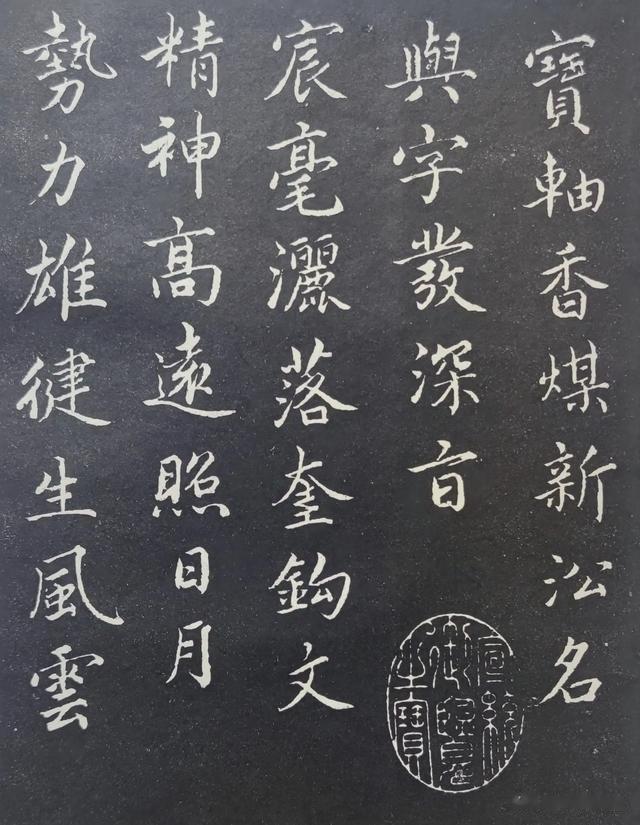 寶軸香煤新㳂名
與字發深㫖
宸毫灑落奎鈎文
精神髙遠照日月
勢力雄徤生風雲